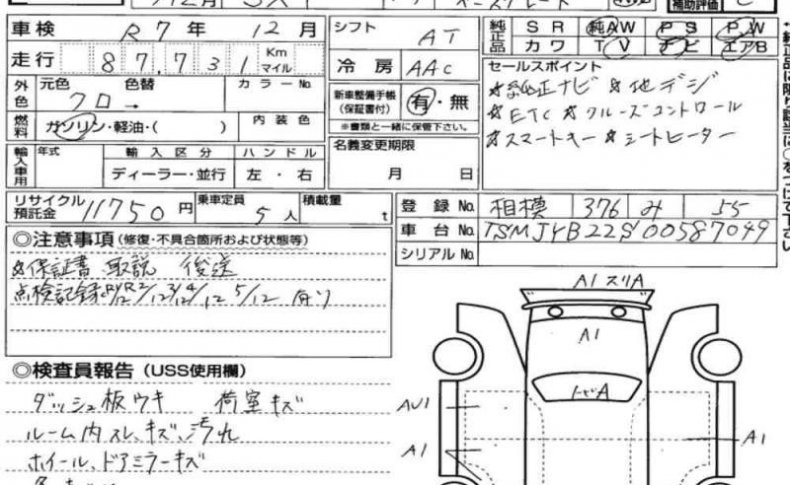 補助評価 C
車検 R7年 12月
シフト AT
純正品 SR 純AW PS PW
カワ TV ナビ エアB
走行 87,731 Km マイル
冷房 AAC
外色 元色 色替 カラーNo.
クロ→
新車整備手帳(保証書付) 有・無
※書類と一緒に保管下さい。
セールスポイント
☆純正ナビ ☆地デジ
☆ETC ☆クルーズコントロール
☆スマートキー ☆シートヒーター
燃料 ガソリン・軽油・( )
内装色
名義変更期限
月 日
輸入車用 年式 輸入区分 ハンドル
ディーラー・並行 左・右
リサイクル預託金 11750円
乗車定員 5人
積載量 t
登録No. 相模 376 み 55
車台No. TSMJYB22S00587049
シリアルNo.
◎注意事項(修復・不具合箇所および状態等)
☆保証書 取説 後送
点検記録 R1/12 R2/12 3/12 4/12 5/12 有り
◎検査員報告(USS使用欄)
ダッシュ板ウキ 荷室キズ
ルーム内スレ、キズ、汚れ
ホイール、ドアミラーキズ
A1 スリA
A1
トビA
AU1
A1
A1